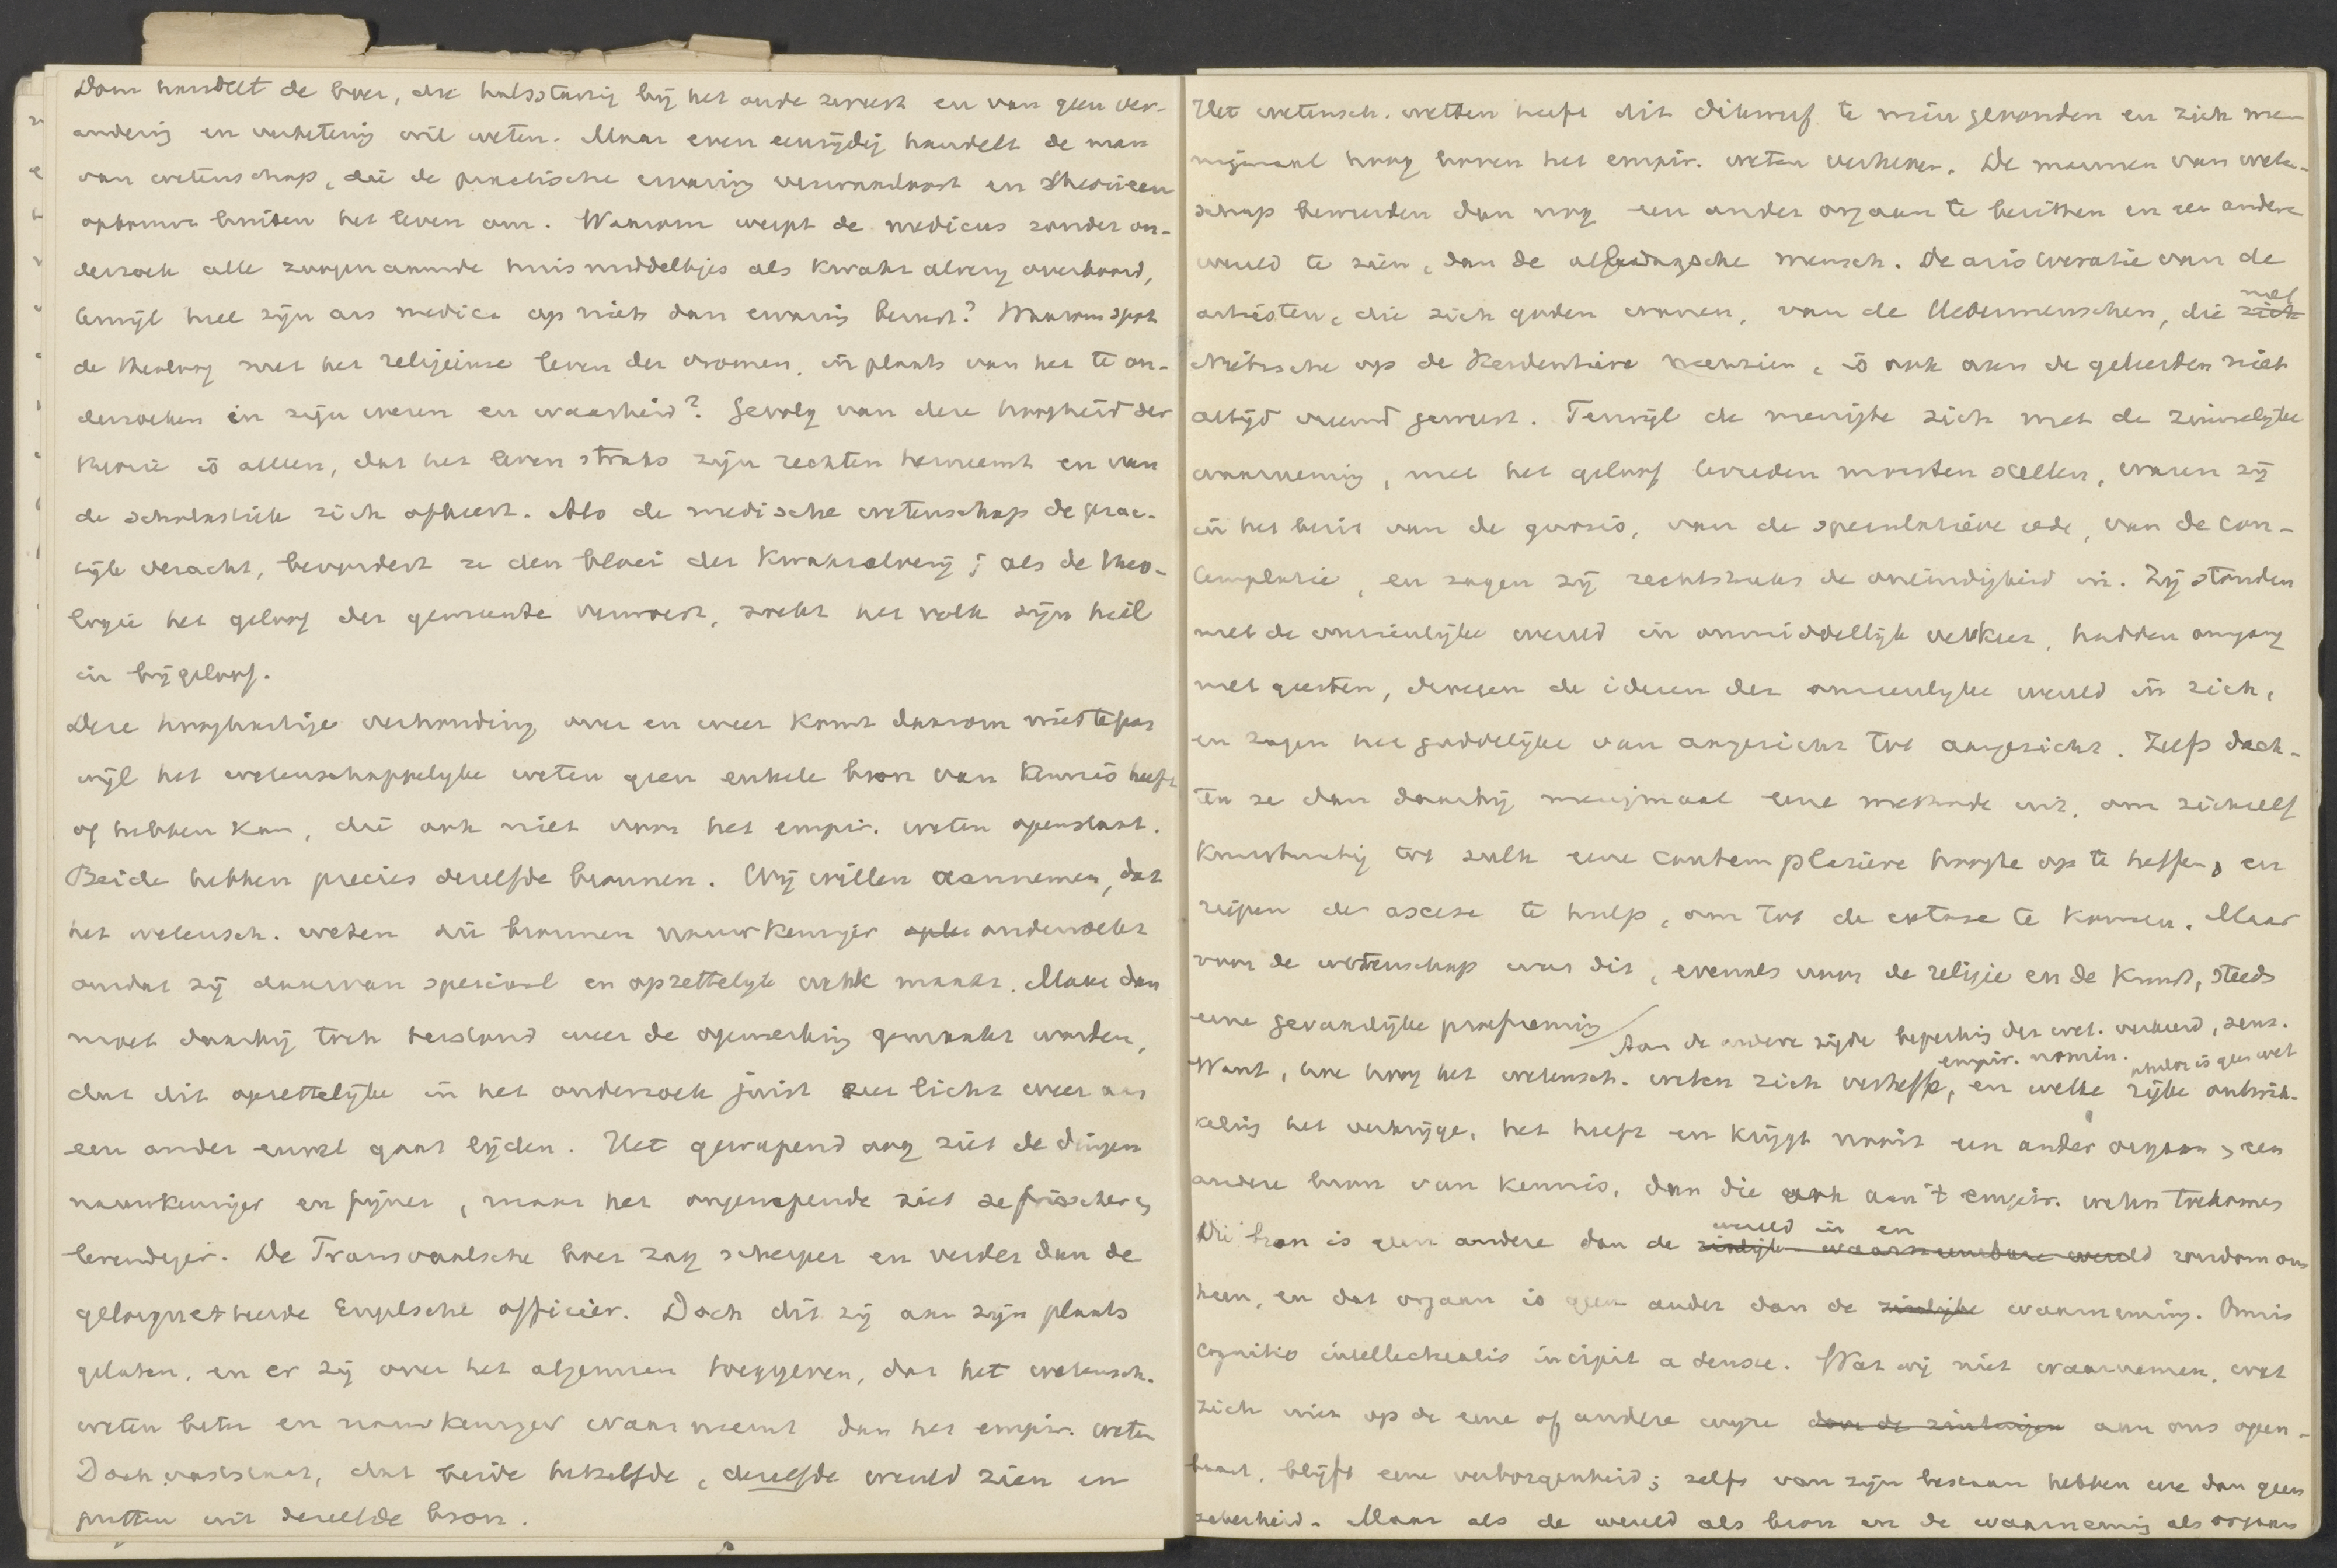 Dom handelt de boer, die halsstarrig bij het oude zweert en van geen ver-
andering en verbetering wil weten. Maar even eenzijdig handelt de man
van wetenschap, die de practische ervaring verwaarloost en theorieën
opbouwt buiten het leven om. Waarom werpt de medicus zonder on-
derzoek alle zoogenaamde huismiddeltjes als kwakzalverij overboord,
terwijl heel zijn ars medica op niets dan ervaring berust? Waarom spot
de theoloog met het religieuse leven der vromen, in plaats van het te on-
derzoeken in zijn wezen en waarheid? Gevolg van deze hoogheid der
theorie is alleen, dat het leven straks zijn rechten herneemt en van
de scholastiek zich afkeert. Als de medische wetenschap de prac-
tijk veracht, bevordert ze den bloei der kwakzalverij; als de theo-
logie het geloof der gemeente verwoest, zoekt het volk zijn heil
in bijgeloof.
Deze hooghartige verhouding over en weer komt daarom niet te pas
wijl het wetenschappelijke weten geen enkele bron van kennis heeft
of hebben kan, die ook niet voor het empir. weten openstaat.
Beide hebben precies dezelfde bronnen. Wij willen aannemen, dat
het wetensch. weten die bronnen nauwkeuriger onderzoekt
omdat zij daarvan speciaal en opzettelijk werk maakt. Maar dan
moet daarbij toch terstond weer de opmerking gemaakt worden,
dat dit opzettelijke in het onderzoek juist zeer licht weer aan
een ander euvel gaat lijden. Het gewapend oog ziet de dingen
nauwkeuriger en fijner, maar het ongewapende ziet ze frisscher en
levendiger. De Transvaalsche boer zag scherper en verder dan de
gelorgnetteerde Engelsche officier. Doch dit zij aan zijn plaats
gelaten, en er zij over het algemeen toegegeven, dat het wetensch.
weten beter en nauwkeuriger waarneemt dan het empir. weten
Doch vaststaat, dat beide hetzelfde, dezelfde wereld zien en
putten uit dezelfde bron.
Het wetensch. weten heeft dit dikwerf te min gevonden en zich men
nigmaal hoog boven het empir. weten verheven. De mannen van weten-
schap beweerden dan nog een ander orgaan te bezitten en een andere
wereld te zien, dan de alledaagsche mensch. De aristocratie van de
artisten, die zich goden wanen, van de Uebermenschen, die zich met
Nietzsche op de Heerdenthiere neerzien, is ook aan de geleerden niet
altijd vreemd geweest. Terwijl de menigte zich met de zinnelijke
waarneming, met het geloof tevreden moesten stellen, waren zij
in het bezit van de gnosis, van de speculatieve rede, van de con-
templatie, en zagen zij rechtstreeks de oneindigheid in. Zij stonden
met de onzienlijke wereld in onmiddellijk verkeer, hadden omgang
met geesten, droegen de ideeen der onzienlijke wereld in zich,
en zagen het goddelijke van aangezicht tot aangezicht. Zelfs dach-
ten ze dan daarbij menigmaal eene methode uit, om zichzelf
kunstmatig tot zulk eene contemplatieve hoogte op te heffen, en
riepen de ascese te hulp, om tot de extase te komen. Maar
voor de wetenschap was dit, evenals voor de religie en de kunst, steeds
eene gevaarlijke proefneming
Aan de andere zijde beperking der wet. verkeerd, sens.
empir. nomin. philos is geen wet
Want, hoe hoog het wetensch. weten zich verheffe, en welke rijke ontwik-
keling het verkrijge, het heeft en krijgt nooit een ander orgaan, een
andere bron van kennis, dan die ook aan 't empir. weten toekomt
wereld in en
Die bron is geen andere dan de zinlijk waarneembare wereld rondom ons
heen, en dat orgaan is geen ander dan de zinlijke waarneming. Omnis
cognitio intellectualis incipit a sensu. Wat wij niet waarnemen, wat
zich niet op de eene of andere wijze door de zintuigen aan ons open-
baart, blijft eene verborgenheid; zelfs van zijn bestaan hebben we dan geen
zekerheid. Maar als de wereld als bron en de waarneming als orgaan